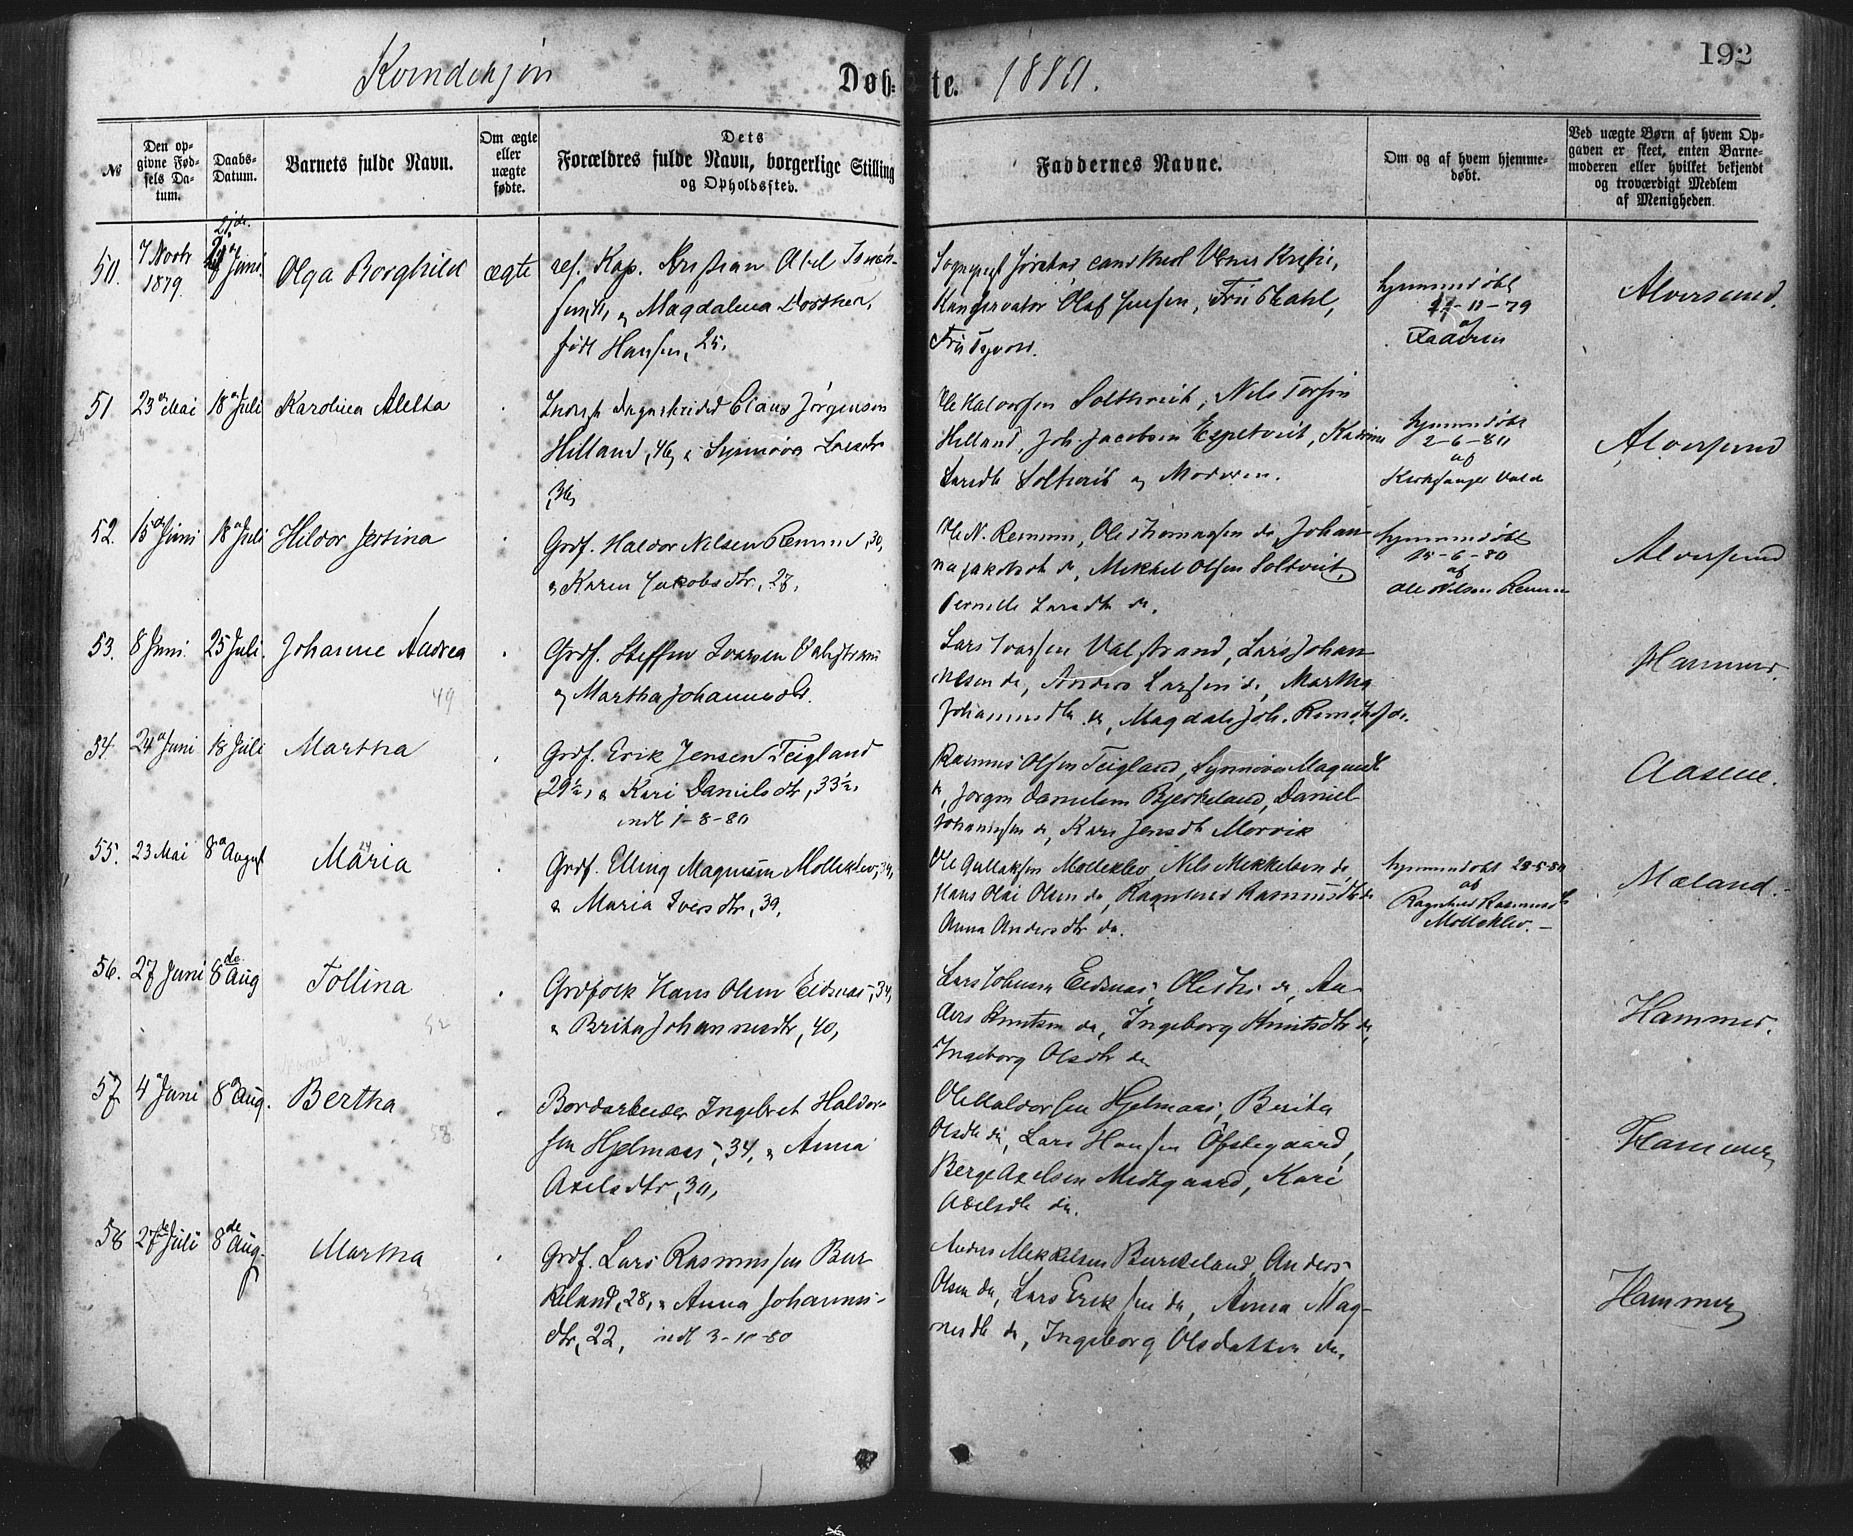 Kvindekjøn
Døb-
te. 1880.
192
№
Den op-
givne Fød-
sels Da-
tum.
Daabs-
Datum.
Barnets fulde Navn.
Om ægte
eller
uægte
fødte.
Dets
Forældres fulde Navn, borgerlige Stilling
og Opholdssted.
Faddernes Navne.
Om og af hvem hjemme-
døbt.
Ved uægte Børn af hvem Op-
gaven er skeet, enten Barne-
moderen eller hvilket bekjendt
og troværdigt Medlem
af Menigheden.
50.
7 Novbr
1879
21de
Juni
Olga Borghild
ægte
res. Kap. Kristian Abel
og Magdalena Dorthea,
født Hansen, 25.
Konservator Olaf Jensen, Fru Dahl,
Fru
hjemmedøbt
-11-79
af
Faderen
Alversund.
51
23 Mai
18 Juli
Karolina Aletta
Claus Jørgensen
Hilland, 46, & Synnøva Larsdtr
36,
Ole Halvorsen Soltveit, Nils
Hilland, Joh. Jacobsen Espetveit,
Larsdtr Soltveit og Moderen.
hjemmedøbt
2-6-80
af
Kirkesanger
Alversund
52.
15 Juni
18 Juli
Hildor Jertina
Grdf. Haldor Nilsen Remme, 30,
& Karen Jakobsdtr, 27.
Ole N. Remme, Ole Thomassen do, Johan-
na Jakobsdtr do, Mikkel Olsen Soltveit,
Pernille Larsdtr do.
hjemmedøbt
15-6-80
af
Ole Nilsen Remme
Alversund
53.
8 Juni
25 Juli.
Johanne Andrea
49
Grdf. Steffen Ivarsen Valestrand
og Martha Johannesdtr.
Lars Ivarsen Valestrand, Lars Johan-
nesen do, Anders Larsen do, Martha
Johannesdtr do, Magdali Joh.
Hammer.
54
24 Juni
18 Juli
Martha
Grdf. Erik Jensen Teigland
29½, & Kari Danielsdtr, 33½,
indl 1-8-80
Rasmus Olsen Teigland, Synneva Magnesdtr
do, Jørgen Danielsen Bjerkeland, Daniel
Johannesen do, Kari Jensdtr Morvik
Aasene.
55.
23 Mai
8 August
Maria
Grdf. Elling Magnesen Mollekleiv, 34,
& Maria Iversdtr, 39,
Ole Gullaksen Mollekleiv, Nils Mikkelsen do,
Hans Olai Olsen do, Ragnhild Rasmusdtr do
Anna Andersdtr do.
hjemmedøbt 23-5-80
af
Ragnhild Rasmusdtr
Mollekleiv.-
Mæland.-
56.
27 Juni
8de Aug
Tollina
52
Grdfolk Hans Olsen Eidsnæs, 34,
& Brita Johannesdtr, 40,
Lars Johnsen Eidsnæs, do, An-
ders Knutsen do, Ingeborg Knutsdtr do,
Ingeborg Olsdtr do
Hammer.
57
4 Juni
8 Aug.
Bertha
58
Bordarbeider Ingebret Haldor-
sen Hjelmaas, 34, & Anna
Axelsdtr, 30,
Ole Haldorsen Hjelmaas, Berita
Olsdtr do, Lars Hansen Øfstegaard,
Berge Axelsen Midtgaard, Kari
Axelsdtr do.
Hammer
58
27de Juli
8de Aug.
Martha
Grdf. Lars Rasmussen Bur-
keland, 28, & Anna Johannes-
dtr, 22, indl 3-10-80
Anders Mikkelsen Burkeland, Anders
Olsen do, Lars Eriksen do, Anna Mag-
nesdtr do, Ingeborg Olsdatter do.
Hammer